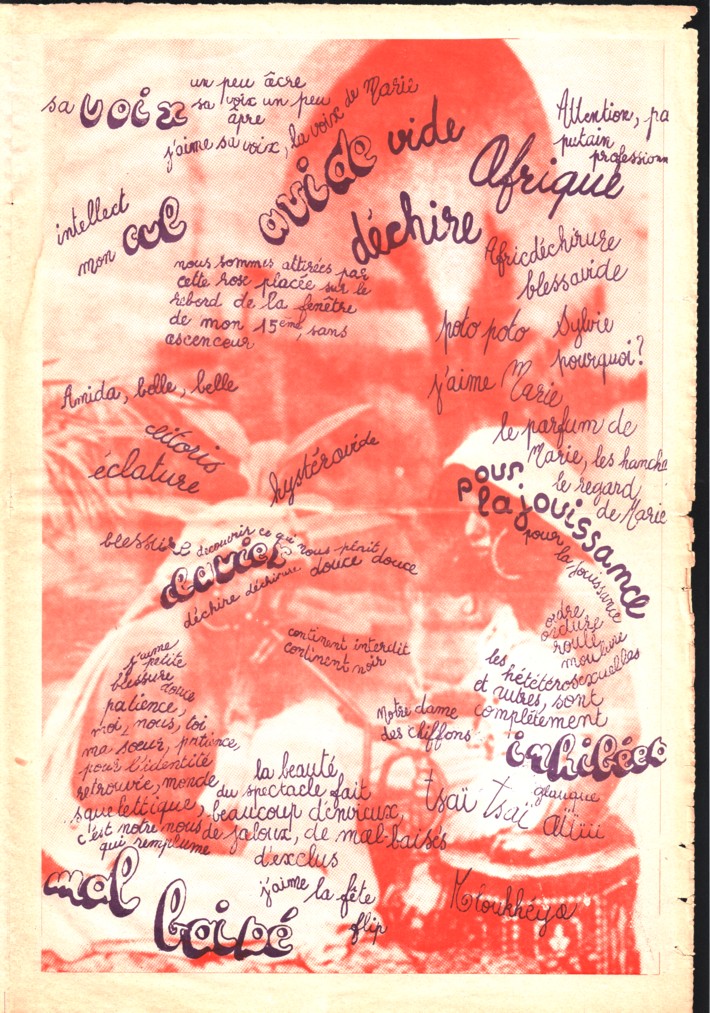 sa voix
un peu âcre
sa voix un peu
âpre
j'aime sa voix, la voix de Marie
Attention, pa
putain
professionn
avide vide
Afrique
déchire
intellect
mon cul
nous sommes attirées par
cette rose placée sur le
rebord de la fenêtre
de mon 15ème, sans
ascenceur
Africdéchirure
blessavide
poto poto
Sylvie
pourquoi?
j'aime Marie
Amida, belle, belle
le parfum de
Marie, les hanche
le regard
de Marie
clitoris
éclature
hystéravide
pour
la jouissance
pour
la jouissance
blessure
découvrir ce qu'
nous pénit
déchire déchirure
douce douce
continent interdit
continent noir
j'aime
petite
blessure
douce
patience,
moi, nous, toi
ma soeur, patience,
pour l'identité
retrouvée, monde
squelettique,
c'est notre nous
qui remplume
ordre
ordure
roule
moulure
les hétérosexuelles
et utres, sont
complètement
inhibées
Notre dame
des chiffons
la beauté
du spectacle fait
beaucoup d'envieux,
de jaloux, de mal baisés
d'exclus
tsaï tsaï aïïïii
glauque
mal
baisé
j'aime la fête
flip
Mloukhéya